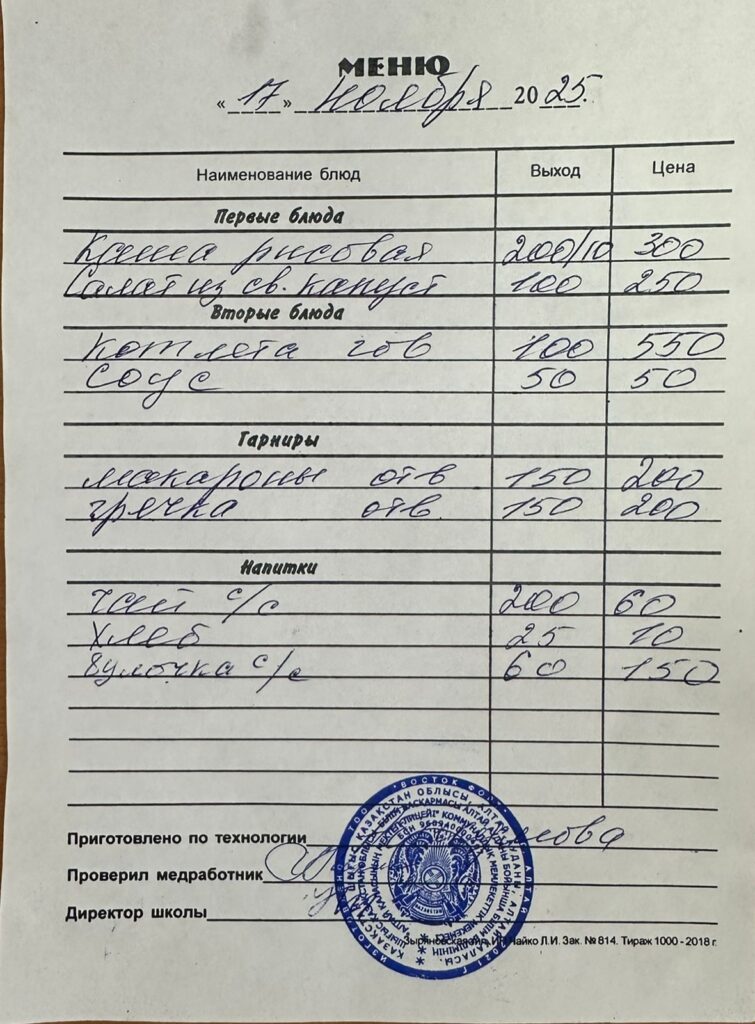 МЕНЮ
« 17 » Ноября 2025.
Наименование блюд Выход Цена
Первые блюда
Каша рисовая 200/10 300
Салат из св. капуст 100 250
Вторые блюда
котлета гов 100 550
соус 50 50
Гарниры
макароны отв 150 200
гречка отв. 150 200
Напитки
чай с/с 200 60
хлеб 25 10
булочка с/с 60 150
Приготовлено по технологии
Проверил медработник
Директор школы
Чайко Л.И. Зак. № 814. Тираж 1000 - 2018 г.